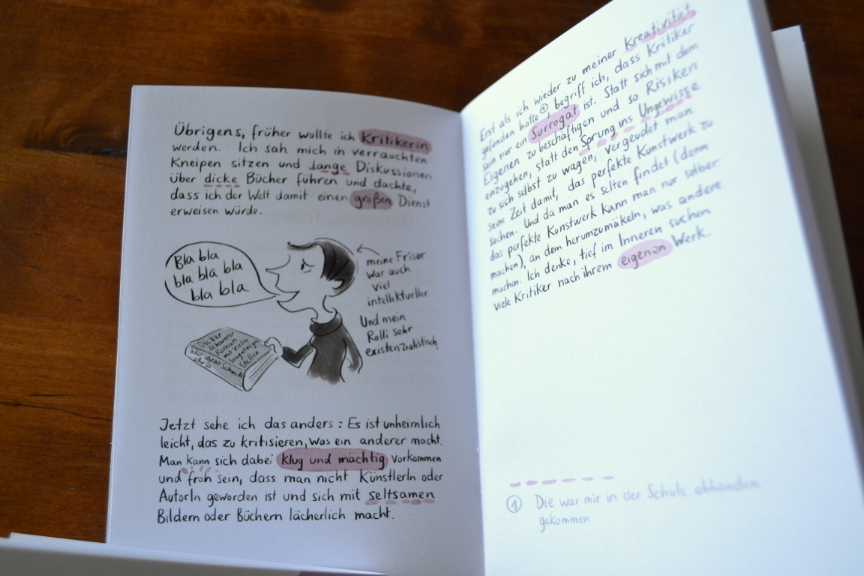 Übrigens, früher wollte ich Kritikerin
werden. Ich sah mich in verrauchten
Kneipen sitzen und lange Diskussionen
über dicke Bücher führen und dachte,
dass ich der Welt damit einen großen Dienst
erweisen würde.
Bla bla
bla bla bla
bla bla
meine Frisur
war auch
viel
intellektueller
Und mein
Rolli sehr
existenzialistisch
Dicker,
schwerer
Roman
mit viele
Stellen
Jetzt sehe ich das anders: Es ist unheimlich
leicht, das zu kritisieren, was ein anderer macht.
Man kann sich dabei klug und mächtig vorkommen
und froh sein, dass man nicht KünstlerIn oder
AutorIn geworden ist und sich mit seltsamen
Bildern oder Büchern lächerlich macht.
Erst als ich wieder zu meiner Kreativität
gefunden hatte ① begriff ich, dass Kritiker
sein nur ein Surrogat ist. Statt sich mit dem
Eigenen zu beschäftigen und so Risiken
einzugehen, statt den Sprung ins Ungewisse
zu sich selbst zu wagen, vergeudet man
seine Zeit damit, das perfekte Kunstwerk zu
suchen. Und da man es selten findet (denn
das perfekte Kunstwerk kann man nur selber
machen), an dem herumzumäkeln, was andere
machen. Ich denke, tief im Inneren suchen
viele Kritiker nach ihrem eigenen Werk.
① Die war mir in der Schule abhanden
gekommen